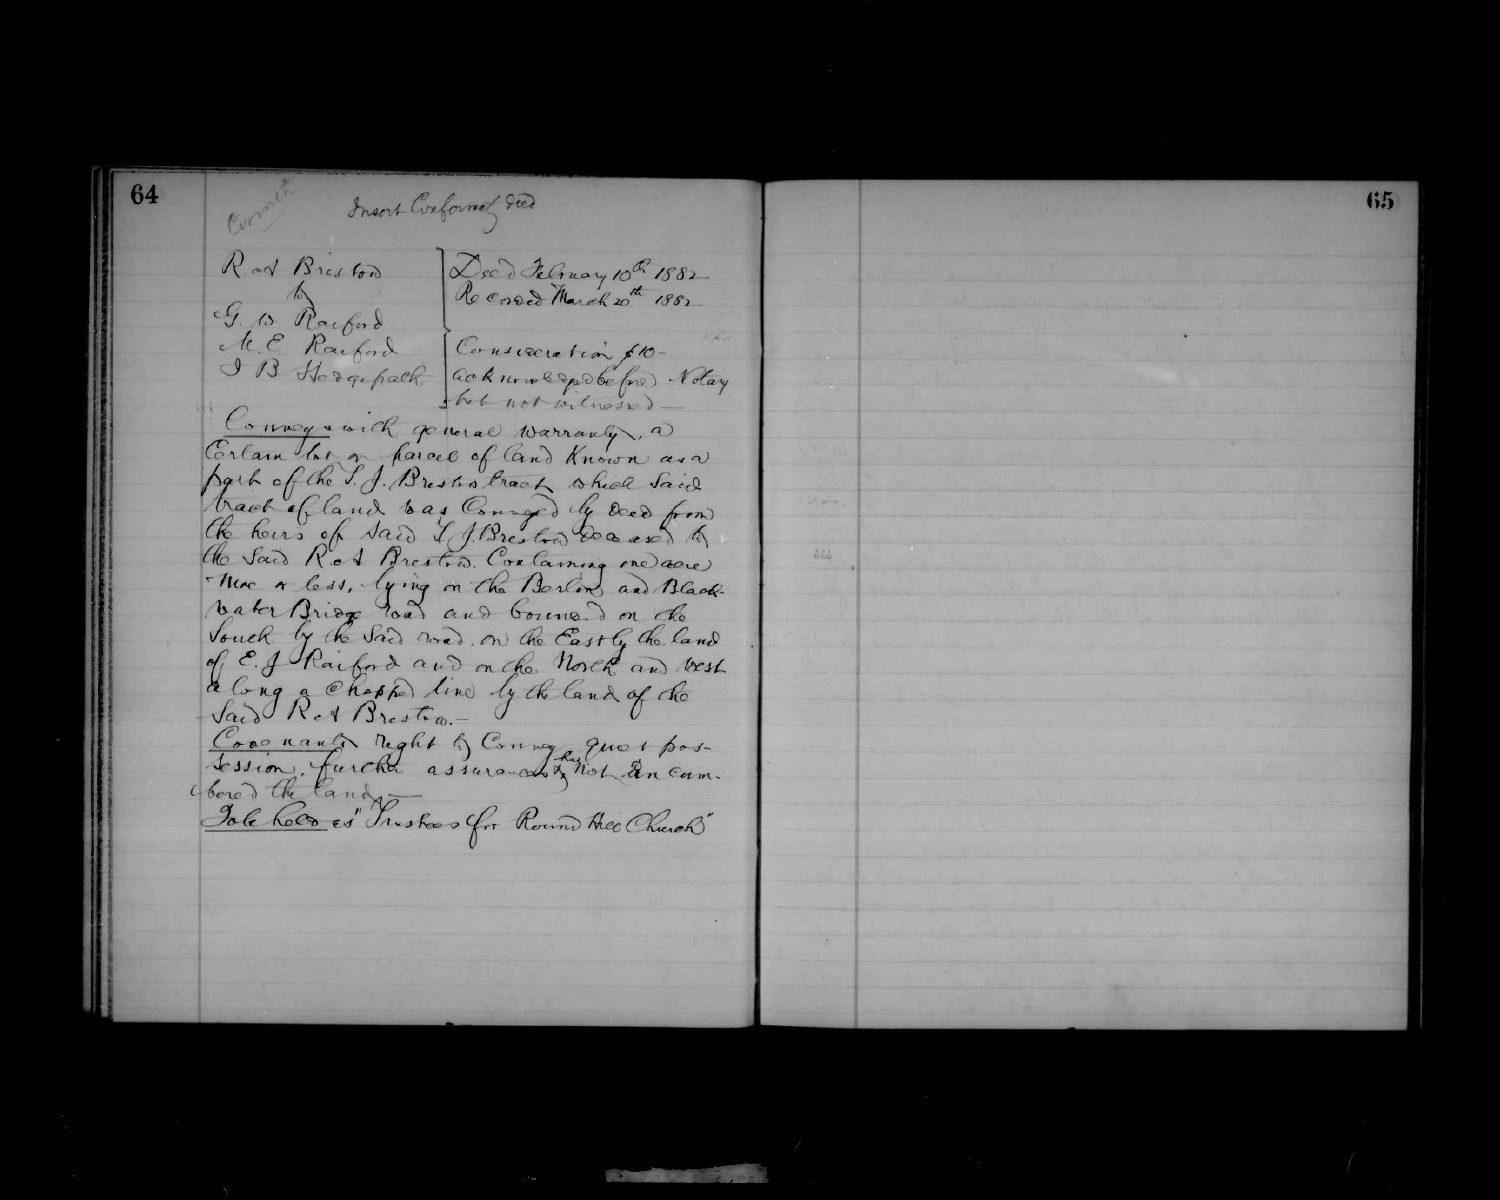 64
65
Insert Conformity deed
R A Bristow
to
G. W Raiford
M. E Raiford
J B Hedgepath
Deed February 10th 1882
Recorded March 20th 1882
Consideration $10-
acknowledged before Notary
but not witnessed —
Conveys with general warranty, a
Certain lot or parcel of land Known as a
part of the T. J. Bristow tract which Said
tract of land was Conveyed by deed from
the heirs of Said T J. Bristow deceased to
the Said R A Bristow. Containing one acre
More or less, lying on the Berlin and Black-
water Bridge road and bound on the
South by the Said road. on the East by the land
of E. J Raiford and on the North and West
along a Chopped line by the land of the
Said R A Bristow.—
Covenants right to Convey quiet pos-
session. further assurances & has Not Encum-
bered the land —
To be held as "Trustees for Round Hill Church"